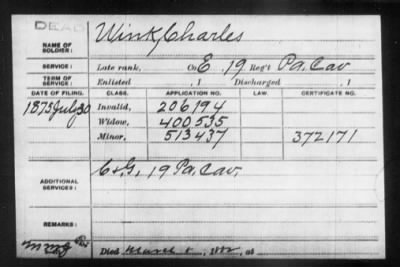 DEAD
NAME OF SOLDIER: Wink, Charles
SERVICE: Late rank, Co E, 19 Reg't Pa. Cav
TERM OF SERVICE: Enlisted , 1 Discharged , 1
DATE OF FILING. CLASS. APPLICATION NO. LAW. CERTIFICATE NO.
1875 July 30 Invalid, 206194
Widow, 400535
Minor, 513437 372171
ADDITIONAL SERVICES: C & G, 19 Pa. Cav.
REMARKS:
Died March , at